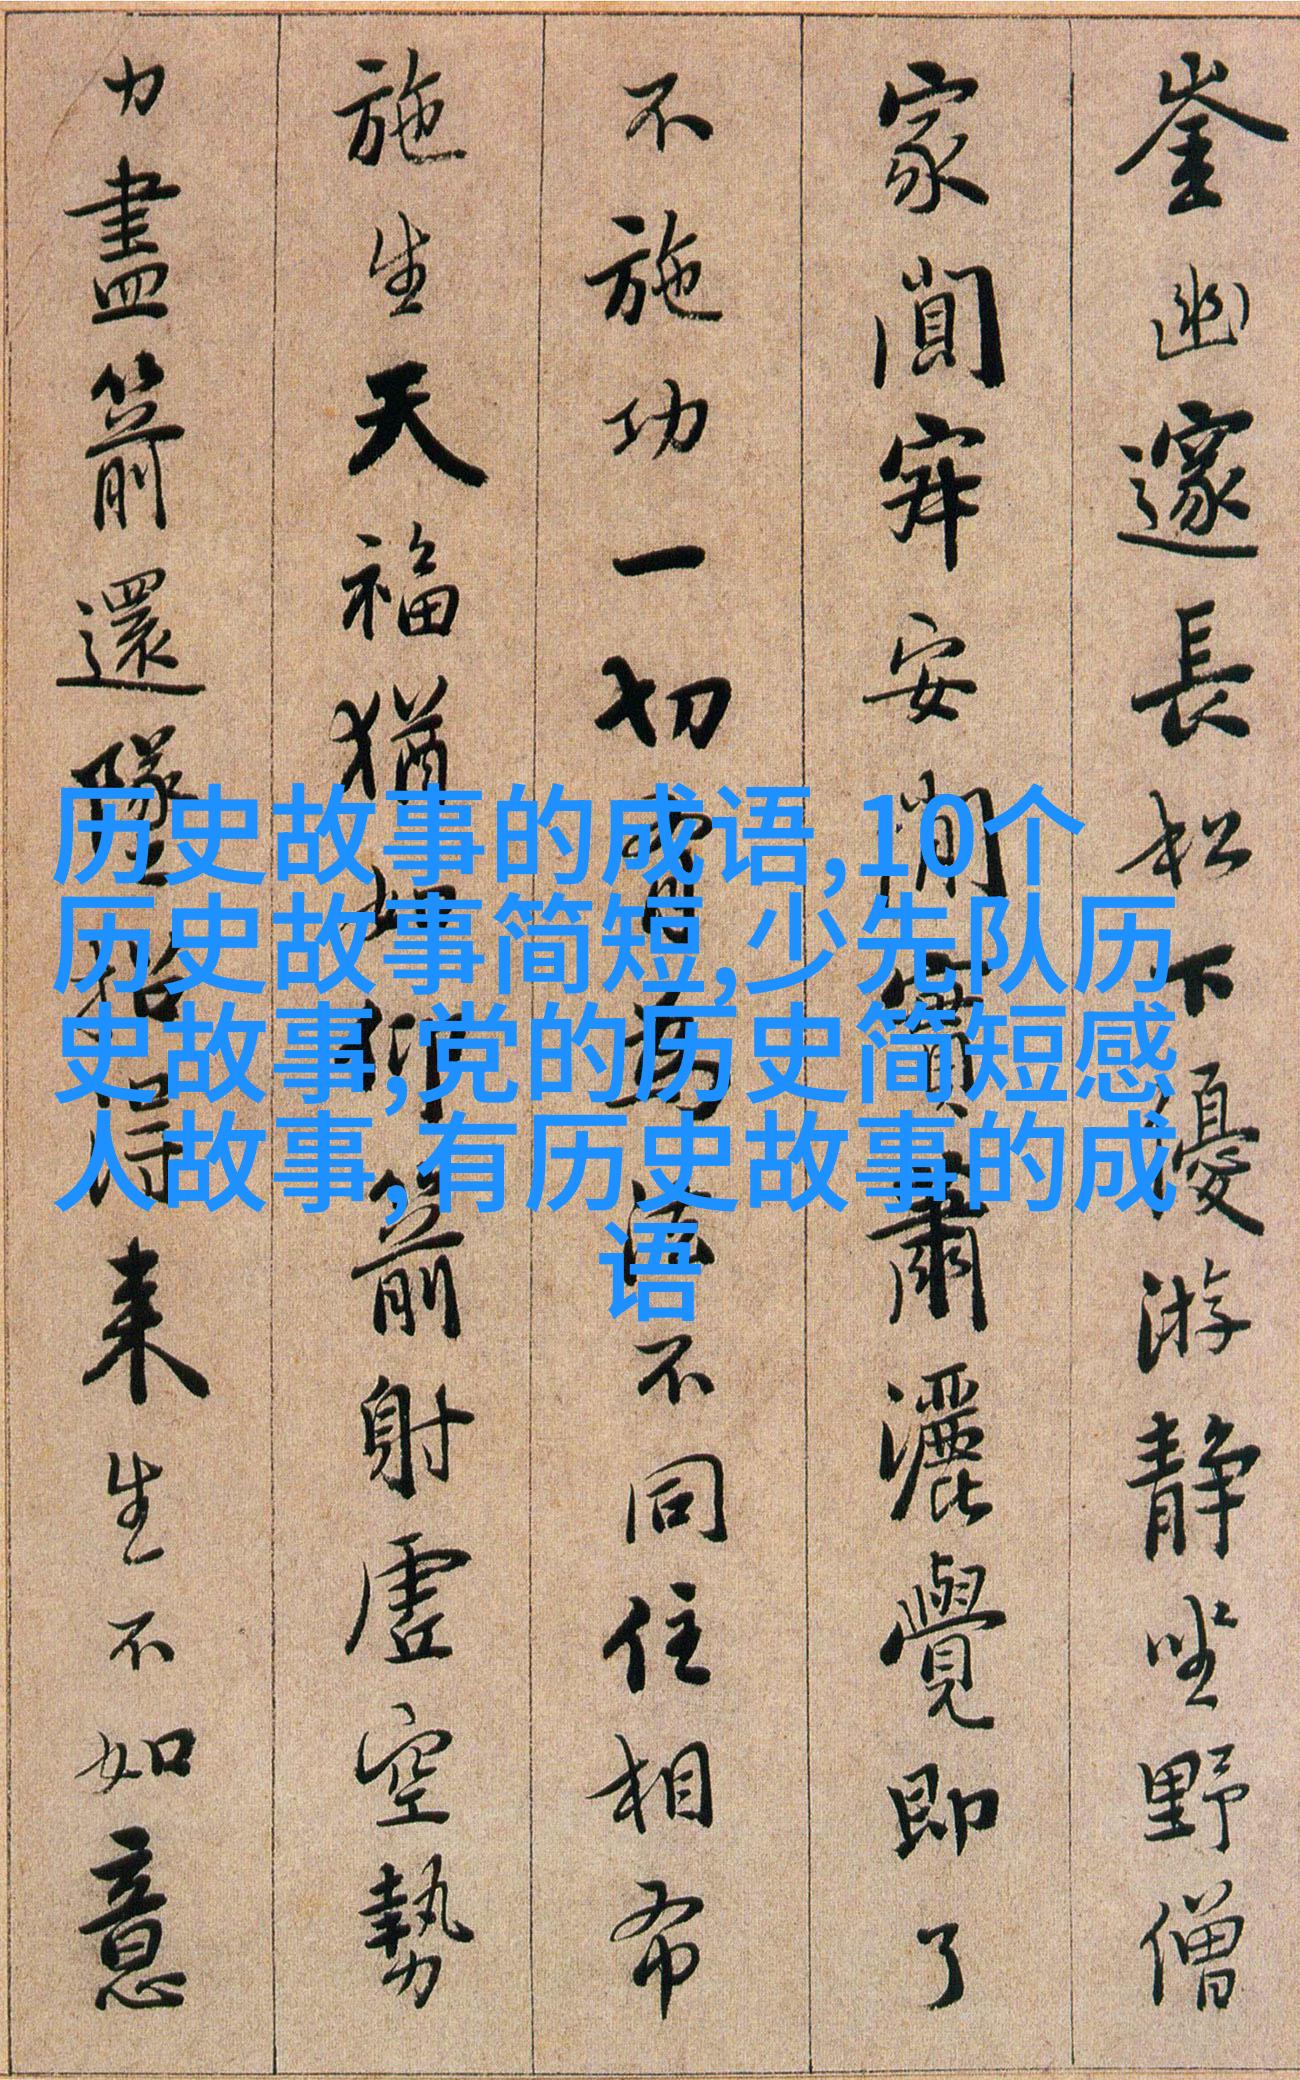 崟幽邃長松下優游靜坐野僧
家闃寂安閒實蕭灑覺即了
不施功一切有為法不同住相布
施生天福猶如仰箭射虛空勢
力盡箭還墜招得來生不如意
历史故事的成语,10个
历史故事简短,少先队历
史故事,党的历史简短感
人故事,有历史故事的成
语